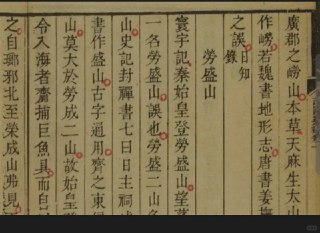 廣郡之嶗山本草天麻生太山
作嶗若魏書地形志唐書姜撫
之誤日知錄
勞盛山
寰宇記秦始皇登勞盛山望蓬
一名勞盛山誤也勞盛二山名
山史記封禪書七日日主祠成
書作盛山古字通用齊之東偏
山莫大於勞成二山故始皇
令入海者齎捕巨魚具而自
之自瑯邪北至榮成山弗見